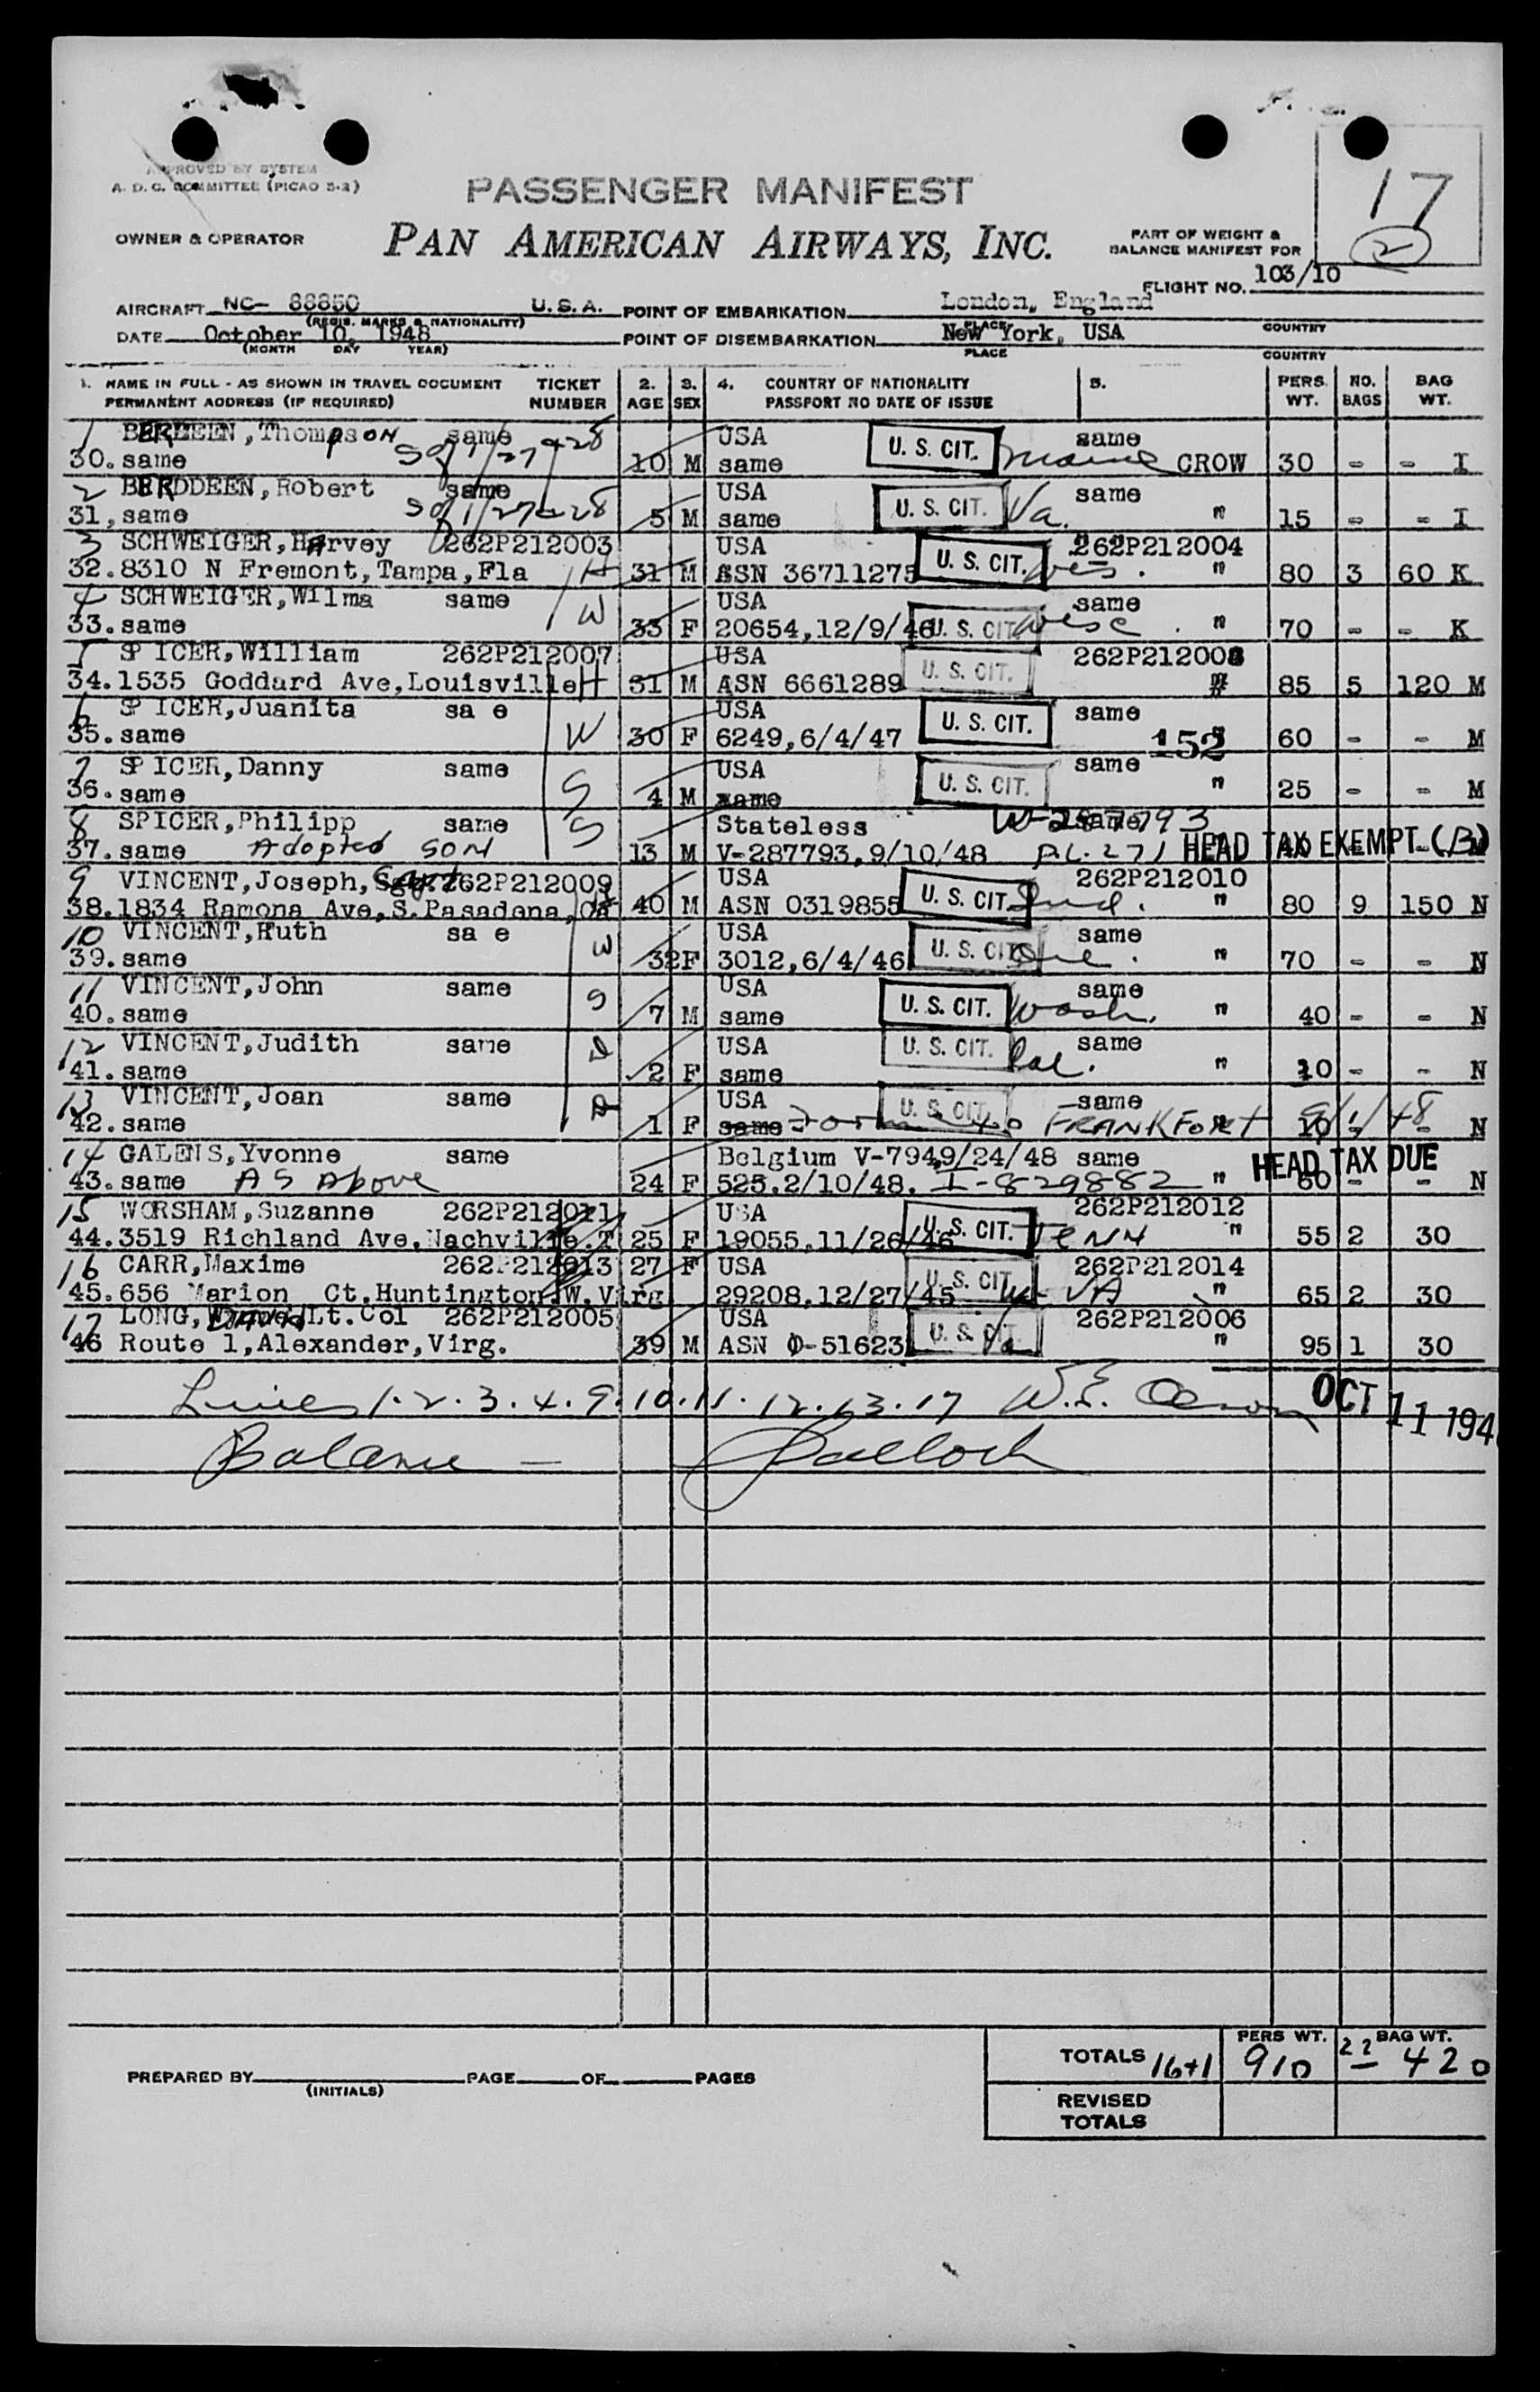 APPROVED BY SYSTEM
A. D. C. COMMITTEE (PICAO 5-2)
17
2
PASSENGER MANIFEST
OWNER & OPERATOR
PAN AMERICAN AIRWAYS, INC.
PART OF WEIGHT &
BALANCE MANIFEST FOR
FLIGHT NO. 103/10
AIRCRAFT NC- 88850 U.S.A. POINT OF EMBARKATION London, England
(REGIS. MARKS & NATIONALITY) PLACE COUNTRY
DATE October 10, 1948 POINT OF DISEMBARKATION New York, USA
(MONTH DAY YEAR) PLACE COUNTRY
1. NAME IN FULL - AS SHOWN IN TRAVEL DOCUMENT TICKET 2. 3. 4. COUNTRY OF NATIONALITY 5. PERS. NO. BAG
PERMANENT ADDRESS (IF REQUIRED) NUMBER AGE SEX PASSPORT NO DATE OF ISSUE WT. BAGS WT.
1 Thompson same USA U. S. CIT. same
30. same 10 M same Maine CROW 30 - - I
2 BERDDEEN, Robert same USA U. S. CIT. same
31, same 5 M same Va. " 15 - - I
3 SCHWEIGER, HArvey 262P212003 USA U. S. CIT. 262P212004
32. 8310 N Fremont, Tampa, Fla H 31 M ASN 36711275 " 80 3 60 K
4 SCHWEIGER, Wilma same USA U. S. CIT. same
33. same W 33 F 20654, 12/9/46 Wisc. " 70 - - K
5 SPICER, William 262P212007 USA U. S. CIT. 262P212008
34. 1535 Goddard Ave, Louisville H 31 M ASN 6661289 " 85 5 120 M
6 SPICER, Juanita sa e USA U. S. CIT. same
35. same W 30 F 6249, 6/4/47 152 60 - - M
7 SPICER, Danny same USA U. S. CIT. same
36. same S 4 M same " 25 - - M
8 SPICER, Philipp same S Stateless same
37. same Adopted SON 13 M V-287793, 9/10/48 P.L. 271 HEAD TAX EXEMPT (B)
9 VINCENT, Joseph, 262P212009 USA U. S. CIT. 262P212010
38. 1834 Ramona Ave, S. Pasadena, Ca 40 M ASN 0319855 Ind. " 80 9 150 N
10 VINCENT, Ruth sa e USA U. S. CIT. same
39. same W 32 F 3012, 6/4/46 " 70 - - N
11 VINCENT, John same USA U. S. CIT. same
40. same S 7 M same Wash. " 40 - - N
12 VINCENT, Judith same USA U. S. CIT. same
41. same D 2 F same Cal. " 10 - - N
13 VINCENT, Joan same USA U. S. CIT. same
42. same D 1 F same FRANKFORT 10 - - N
14 GALENS, Yvonne same Belgium V-794, 9/24/48 same HEAD TAX DUE
43. same AS Above 24 F 525. 2/10/48. I-829882 " 60 - - N
15 WORSHAM, Suzanne 262P212011 USA U. S. CIT. 262P212012
44. 3519 Richland Ave, Nachville. T 25 F 19055, 11/26/46 TENN " 55 2 30
16 CARR, Maxime 262P212013 27 F USA U. S. CIT. 262P212014
45. 656 Marion Ct. Huntington, W. Virg 29208, 12/27/45 W- VA " 65 2 30
17 LONG, Lt. Col 262P212005 USA U. S. CIT. 262P212006
46 Route 1, Alexander, Virg. 39 M ASN O-51623 Va " 95 1 30
Lines 1. 2. 3. 4. 9. 10. 11. 12. 13. 17 W. E. OCT 11 194
Balance -
TOTALS 16+1 PERS WT. 910 22 BAG WT. 420
PREPARED BY (INITIALS) PAGE OF PAGES
REVISED
TOTALS